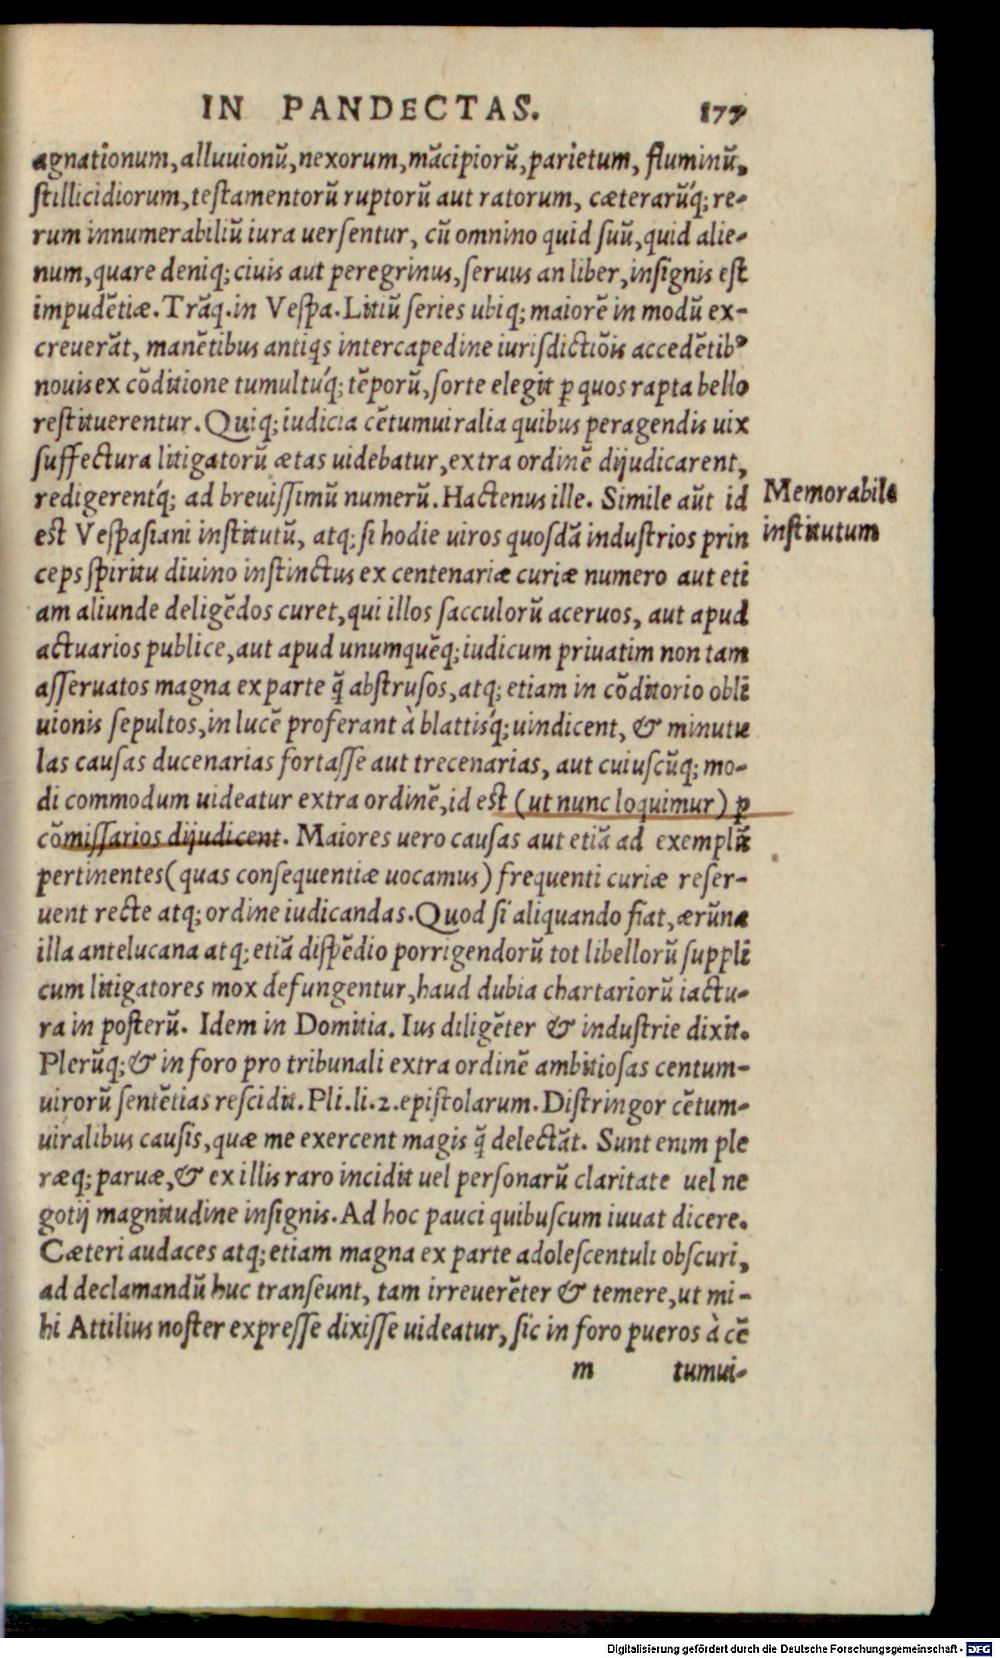 IN PANDECTAS. 177
agnationum, alluuionū, nexorum, mācipiorū, parietum, fluminū,
stillicidiorum, testamentorū ruptorū aut ratorum, cæterarūq́; re-
rum innumerabiliū iura uersentur, cū omnino quid suū, quid alie-
num, quare deniq; ciuis aut peregrinus, seruus an liber, insignis est
impudētiæ. Trāq. in Vespa. Litiū series ubiq; maiorē in modū ex-
creuerāt, manētibus antiq̨s intercapedine iurisdictiōis accedētibꝰ
nouis ex cōditione tumultuq́; tēporū, sorte elegit ꝑ quos rapta bello
restituerentur. Quiq; iudicia cētumuiralia quibus peragendis uix
suffectura litigatorū ætas uidebatur, extra ordinē dijudicarent,
redigerentq́; ad breuissimū numerū. Hactenus ille. Simile aūt id
est Vespasiani institutū, atq; si hodie uiros quosdā industrios prin
ceps spiritu diuino instinctus ex centenariæ curiæ numero aut eti
am aliunde deligēdos curet, qui illos sacculorū aceruos, aut apud
actuarios publice, aut apud unumquēq; iudicum priuatim non tam
asseruatos magna ex parte q̄ abstrusos, atq; etiam in cōditorio obli
uionis sepultos, in lucē proferant à blattisq́; uindicent, & minutu
las causas ducenarias fortasse aut trecenarias, aut cuiuscūq; mo-
di commodum uideatur extra ordinē, id est (ut nunc loquimur) ꝑ
cōmissarios dijudicent. Maiores uero causas aut etiā ad exemplū
pertinentes (quas consequentiæ uocamus) frequenti curiæ reser-
uent recte atq; ordine iudicandas. Quod si aliquando fiat, ærūna
illa antelucana atq; etiā dispēdio porrigendorū tot libellorū suppli
cum litigatores mox defungentur, haud dubia chartariorū iactu-
ra in posterū. Idem in Domitia. Ius diligēter & industrie dixit.
Plerūq; & in foro pro tribunali extra ordinē ambitiosas centum-
uirorū sentētias rescidit. Pli. li. 2. epistolarum. Distringor cētum-
uiralibus causis, quæ me exercent magis q̄ delectāt. Sunt enim ple
ræq; paruæ, & ex illis raro incidit uel personarū claritate uel ne
gotij magnitudine insignis. Ad hoc pauci quibuscum iuuat dicere.
Cæteri audaces atq; etiam magna ex parte adolescentuli obscuri,
ad declamandū huc transeunt, tam irreuerēter & temere, ut mi-
hi Attilius noster expresse dixisse uideatur, sic in foro pueros à cē
m tumui-
Memorabile
institutum
Digitalisierung gefördert durch die Deutsche Forschungsgemeinschaft - DFG